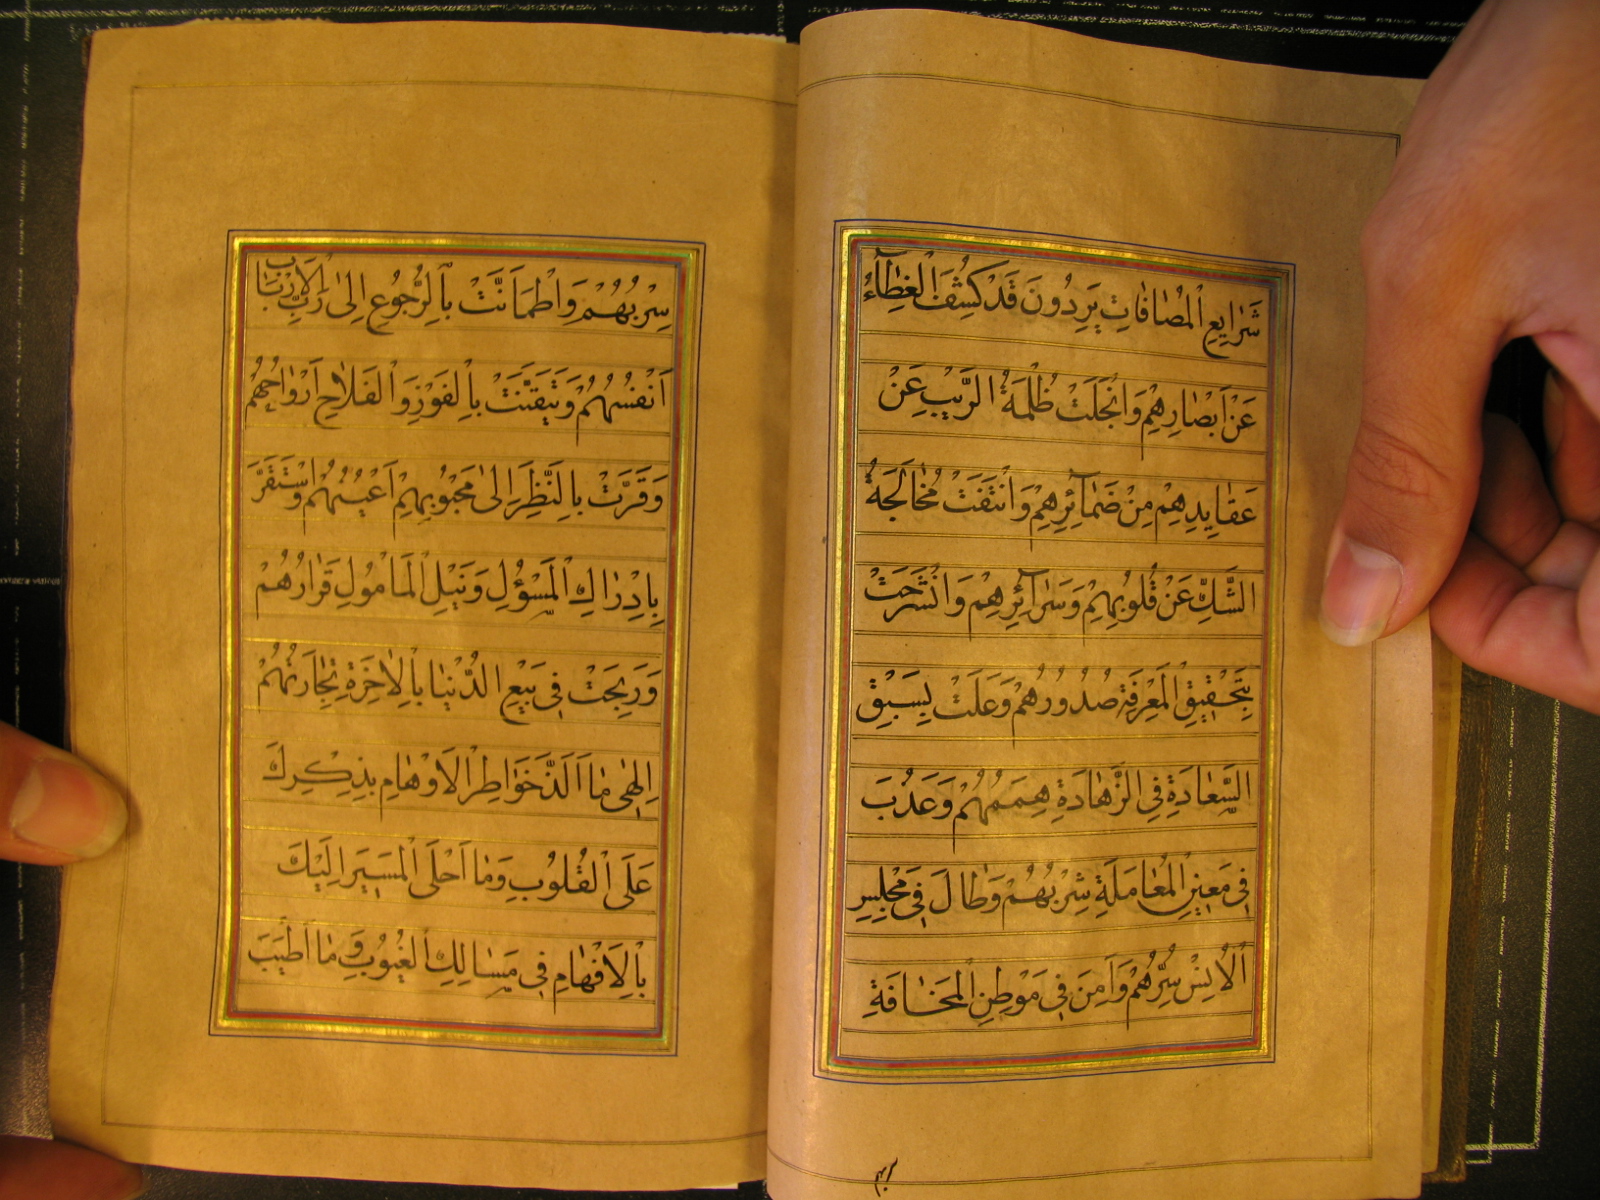 شَرٰايِعِ الْمُصٰافٰاتِ يَرِدُونَ قَدْ كُشِفَ الْغِطٰآءُ
عَنْ اَبْصٰارِهِمْ وَانْجَلَتْ ظُلْمَةُ الرَّيْبِ عَنْ
عَقٰايِدِهِمْ مِنْ ضَمٰآئِرِهِمْ وَانْتَفَتْ مُخٰالَجَةُ
الشَّكِّ عَنْ قُلُوبِهِمْ وَسَرٰآئِرِهِمْ وَانْشَرَحَتْ
بِتَحْقيقِ الْمَعْرِفَةِ صُدُورُهُمْ وَعَلَتْ لِسَبْقِ
السَّعٰادَةِ فِى الزَّهٰادَةِ هِمَمُهُمْ وَعَذُبَ
فى مَعينِ الْمُعٰامَلَةِ شِرْبُهُمْ وَطٰالَ فى مَجْلِسِ
الْاُنِسْ سِرُّهُمْ وَاَمِنَ فى مَوْطِنِ الْمَخٰافَةِ
سِرْبُهُمْ وَاطْمَاَنَّتْ بِالرُّجُوعِ اِلىٰ رَبِّ الْاَرْبٰابِ
اَنْفُسُهُمْ وَتَيَقَّنَتْ بِالْفَوْزِ وَالْفَلٰاحِ اَرْوٰاحُهُمْ
وَقَرَّتْ بِالنَّظَرِ اِلىٰ مَحْبُوبِهِمْ اَعْيُنُهُمْ وَاسْتَقَرَّ
بِاِدْرٰاكِ الْمَسْؤُلِ وَنَيْلِ الْمَاْمُولِ قَرٰارُهُمْ
وَرَبِحَتْ فى بَيْعِ الدُّنْيٰا بِالْاٰخِرَةِ تِجٰارَتُهُمْ
اِلٰهى مٰا اَلَذَّ خَوٰاطِرَ الْاَوْهٰامِ بِذِكْرِكَ
عَلَى الْقُلُوبِ وَمٰا اَحْلَى الْمَسيرَ اِلَيْكَ
بِالْاَفْهٰامِ فى مَسٰالِكِ الْغُيُوبِ وَ مٰا اَطْيَبَ